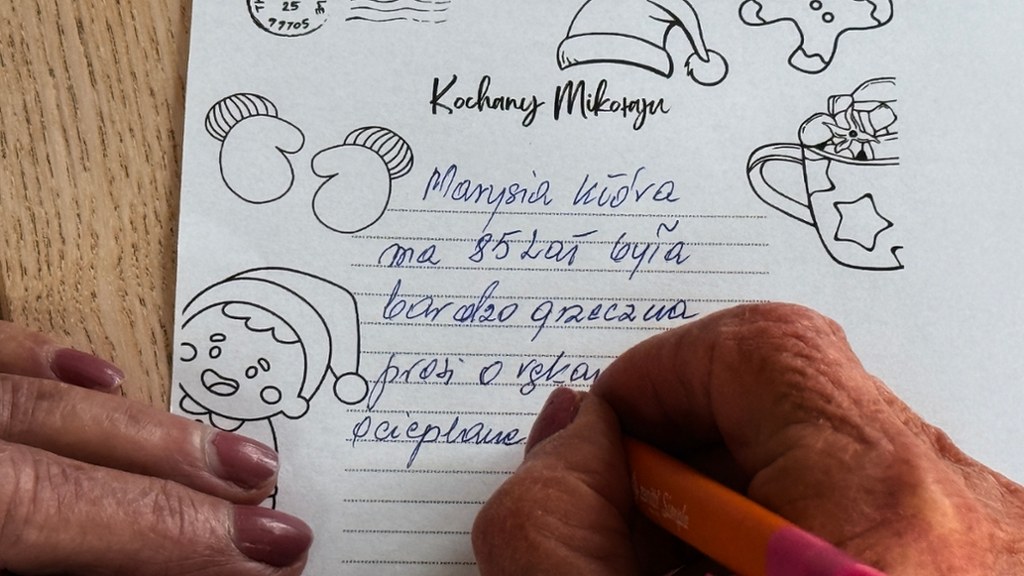 25
77705
Kochany Mikołaju
Marysia która
ma 85 lat była
bardzo grzeczna
prosi o
ocieplane